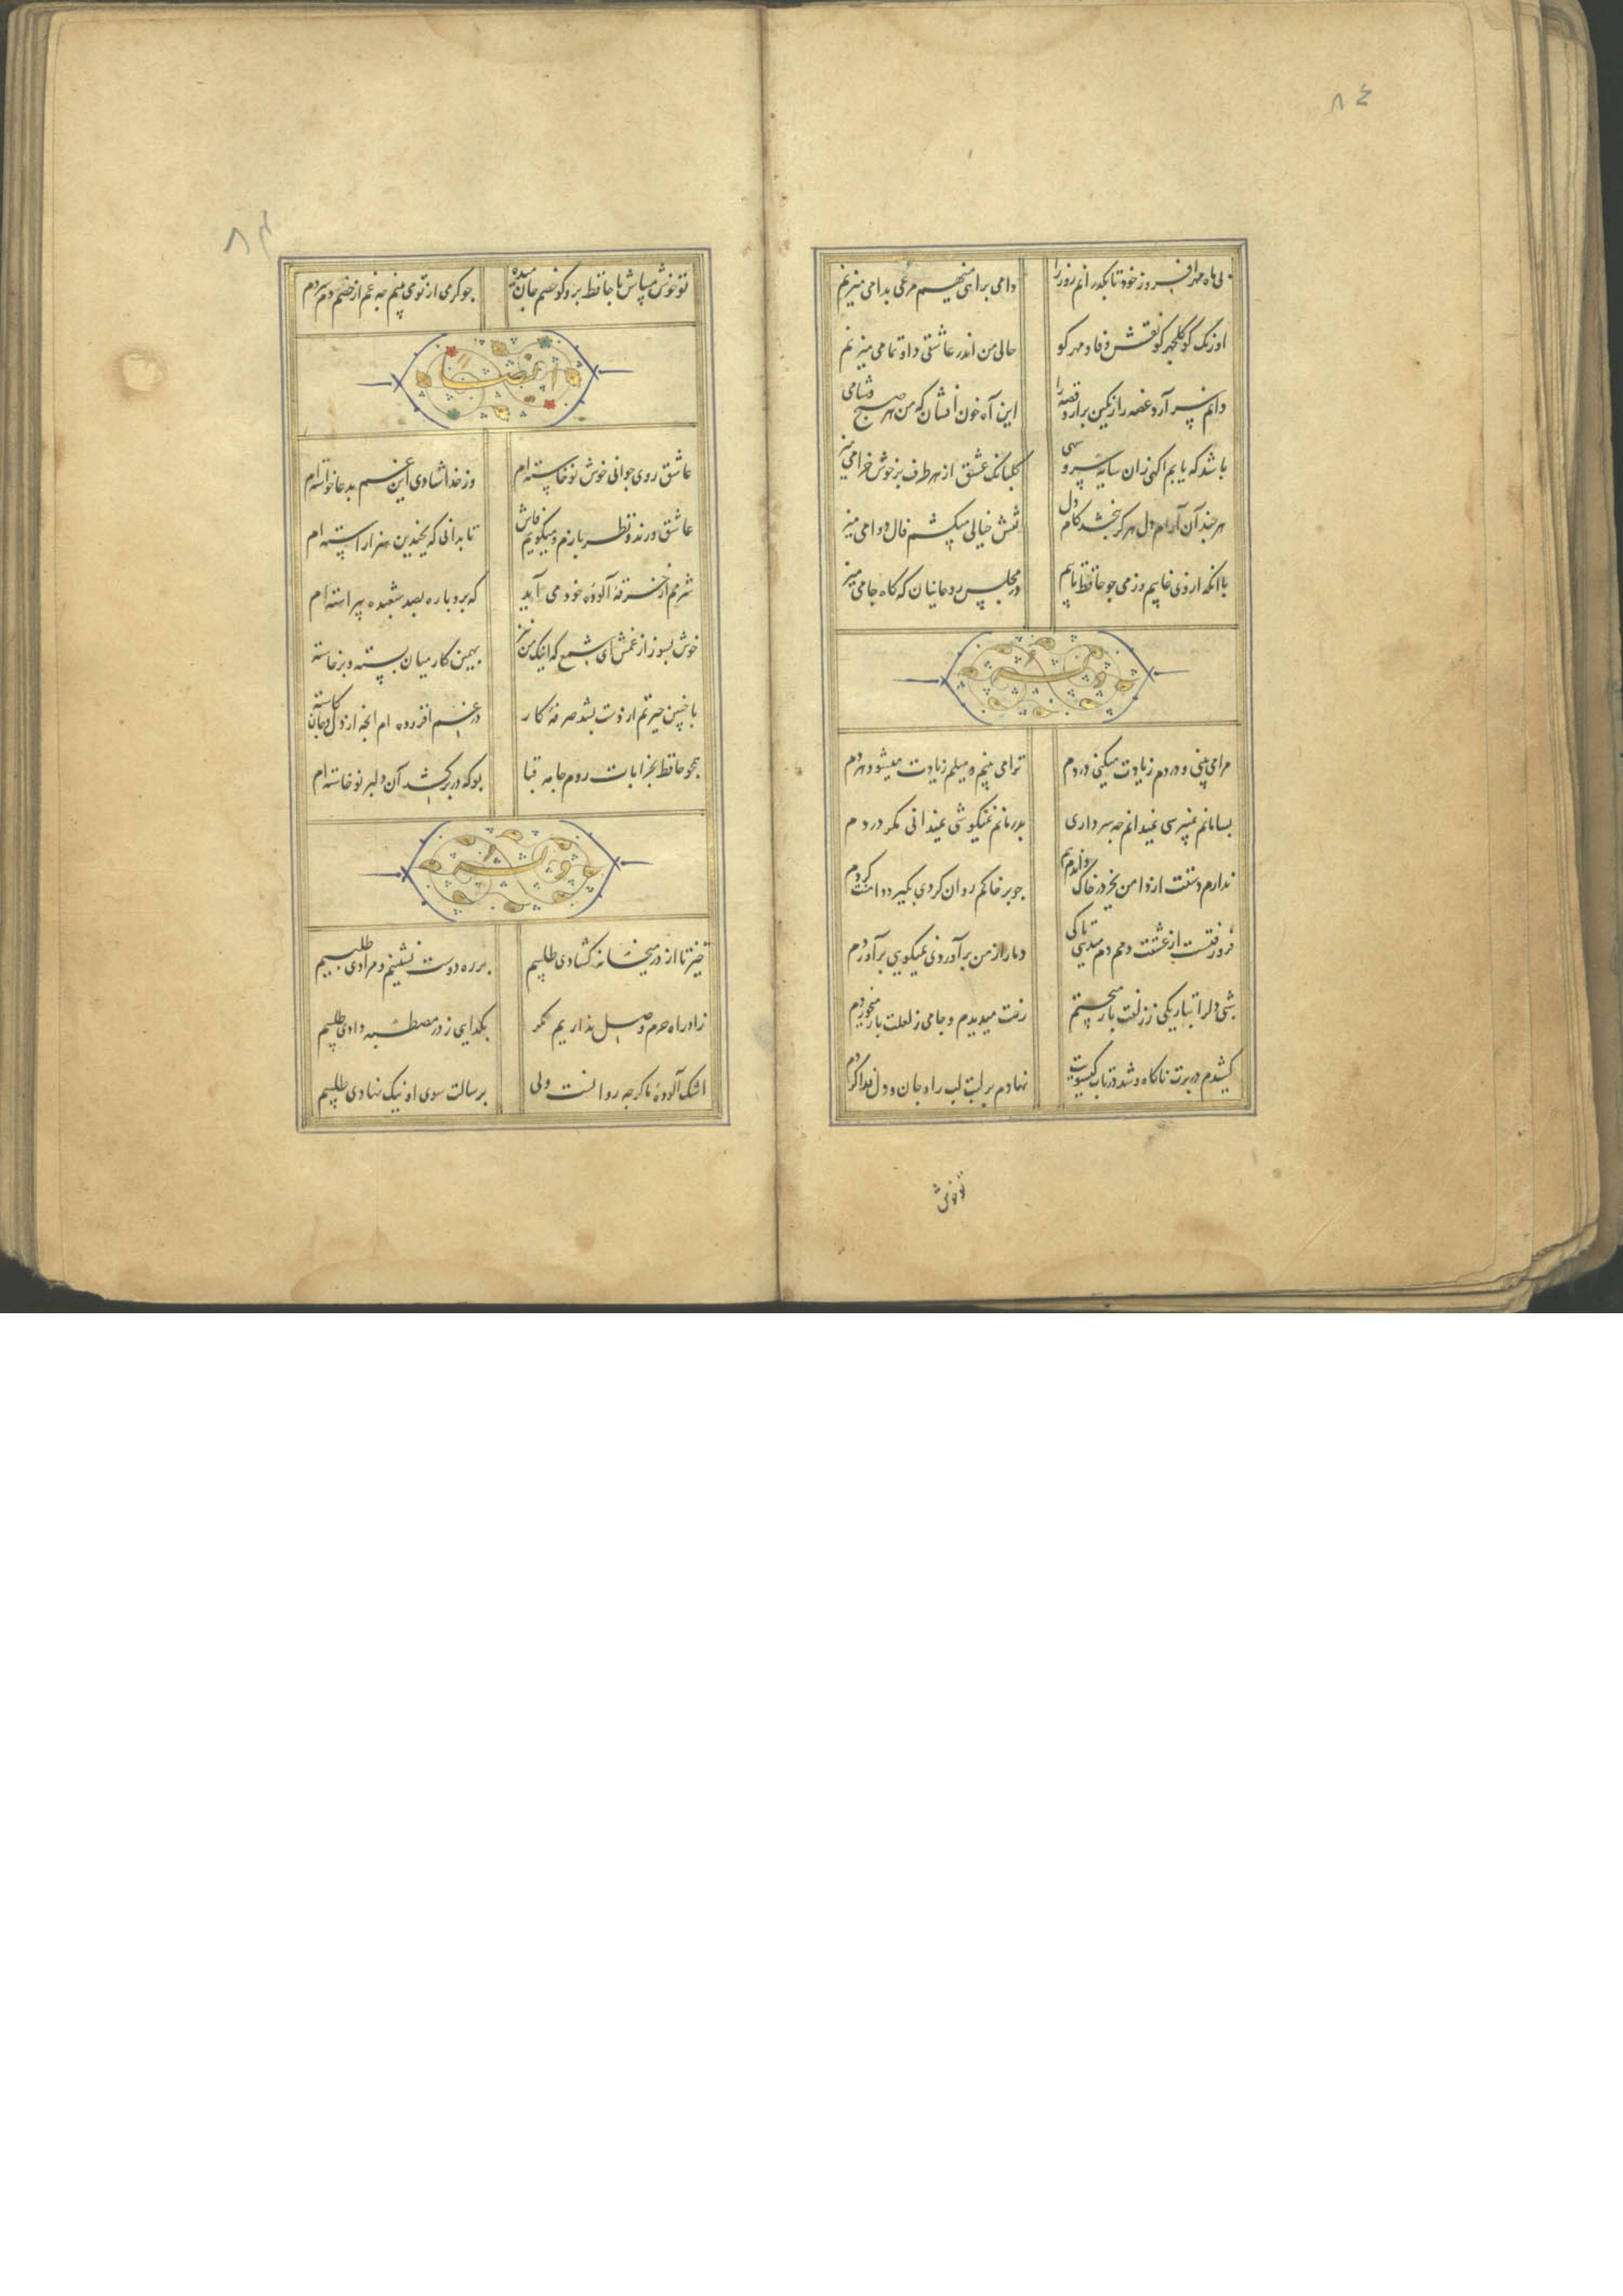 ٨٤
بی ماه مهر افروز خود تا بگذرانم روز را
دامی براهی مینهم مرغی بدامی میزنم
اورنگ کو گلچهر کو نقش وفا و مهر کو
حالی من اندر عاشقی داو تمامی میزنم
دانم سر آرد غصه را رنگین برآرد قصه را
این آه خون افشان که من هر صبح و شامی
تا باشد که یابم آگهی زان سایه سرو سهی
گلبانک عشق از هر طرف بر خوش خرامی میز
هر چند آن آرام دل هر کز نبخشد کام دل
نقش خیالی میکشم فال دوامی میز
با آنکه از وی غایبم وز می چو حافظ تایبم
در مجلس روحانیان که کاه جامی میز
وله
مرا می بینی و دردم زیادت میکنی دردم
ترا می بینم و میلم زیادت میشود هر دم
بسامانم نمیپرسی نمیدانم چه سر داری
بدرمانم نمیکوشی نمیدانی مکر دردم
ندارم دستت از دامن بجز در خاک و آندم هم
چو بر خاکم روان کردی بگیرد دامنت کردم
فرو رفتست از عشقت دمم دم میدهی تا کی
دمار از من برآوردی نمیکویی برآوردم
شبی دل را بتاریکی ز زلفت باز میجستم
رخت میدیدم و جامی ز لعلت باز میخوردم
کشیدم در برت ناگاه و شد در تاب کیسویت
نهادم بر لبت لب را و جان و دل فدا کردم
تو خوش
تو خوش میباش با حافظ برو کو خصم جان میده
چو کرمی از تو می بینم چه غم از خصم دم سردم
ایضاً
عاشق روی جوانی خوش نوخاسته ام
وز خدا شادی این غم بدعا خواسته ام
عاشق و رند و نظر بازم و میکویم فاش
تا بدانی که بچندین هنر آراسته ام
شرمم از خرقه آلوده خود می آید
که برو پاره بصد شعبده پیراسته ام
خوش بسوز از غمش ای شمع که اینک من نیز
بهمین کار میان بسته و برخاسته
با چنین حیرتم از دست بشد صرفه کار
در غم افزوده ام انچه از دل و جان کاسته
همچو حافظ بخرابات روم جامه قبا
بو که در بر کشد آن دلبر نوخاسته ام
وله
خیز تا از در میخانه کشادی طلبیم
بر ره دوست نشینیم و مرادی طلبیم
زاد راه حرم وصل نداریم مکر
بکدایی ز در مصطبه دادی طلبیم
اشک آلوده ما کرچه روانست ولی
برسالت سوی او نیک نهادی طلبیم